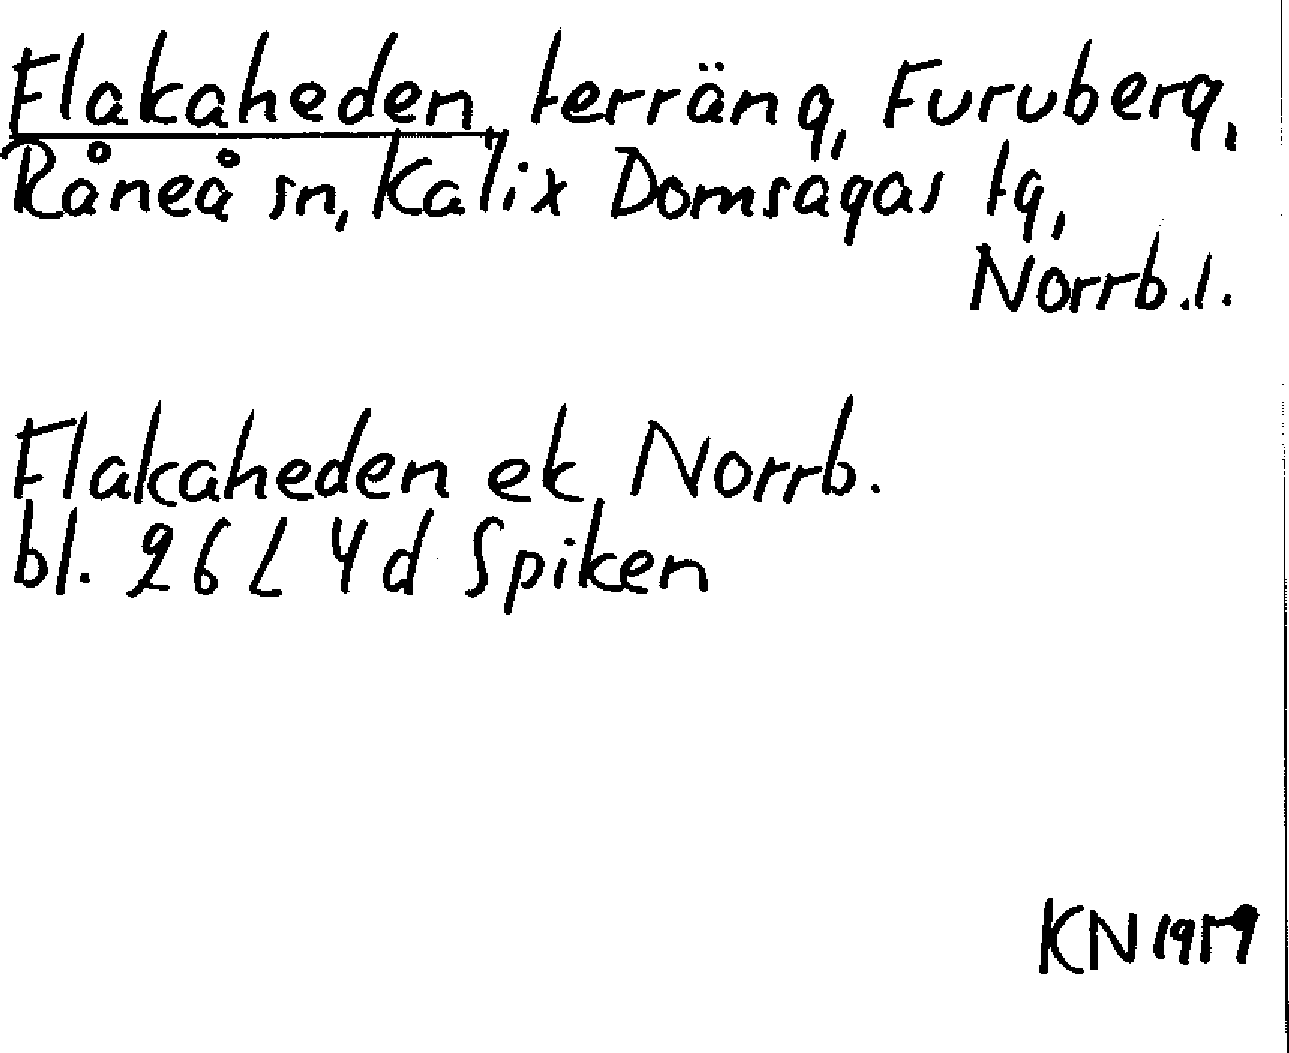 Flakaheden, terräng, Furuberg,
Råneå sn, Kalix Domsagas tg,
Norrb.l.
Flakaheden ek, Norrb.
bl. 26 L 4d Spiken
KN